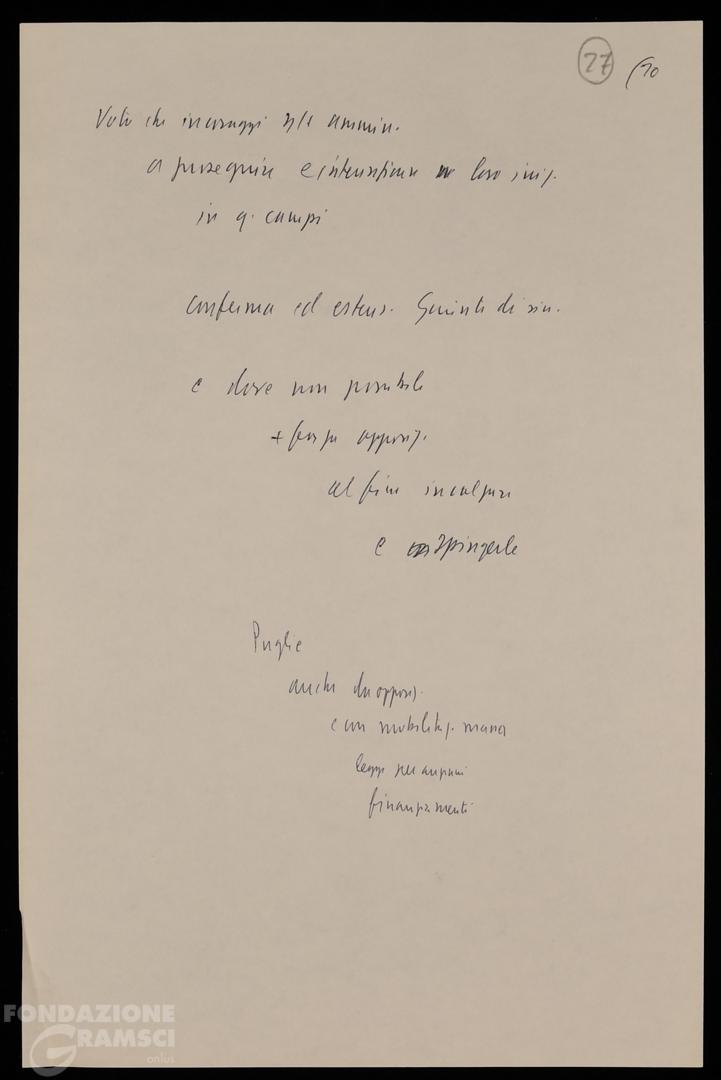 27 (10
Voto che incoraggi q/e ammin.
a proseguire e intensificare loro iniz.
in q. campi
conferma ed estens. Giunte di sin.
e dove non possibile
+ forza opposiz.
al fine incalzare
e spingerle
Puglie
anche da opposiz.
e con mobilitaz. massa
leggi per
finanziamenti
FONDAZIONE
GRAMSCI
onlus